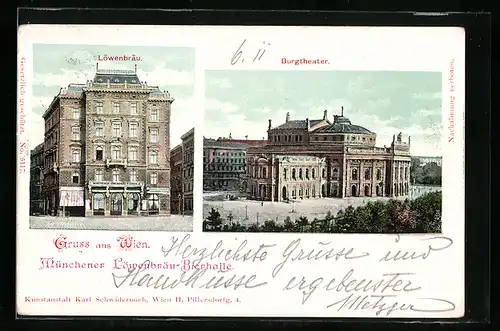 6 II
Löwenbräu.
Burgtheater.
Gesetzlich geschützt. No. 5117.
Nachahmung verboten.
Gruss aus Wien.
Münchener Löwenbräu-Bierhalle.
Herzlichste Grüsse und
Handküsse ergebenster
Metzger
Kunstanstalt Karl Schwidernoch, Wien II, Pillersdorfg. 4.